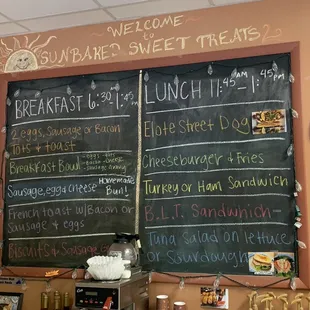 WELCOME
to
SUNBAKED SWEET TREATS
BREAKFAST 6:30 - 1:45
AM
2 eggs, Sausage or Bacon
Tots & toast
Breakfast Bowl
Sausage, egg & cheese
Homemade
Bun!
French toast w/Bacon or
Sausage & eggs
Biscuits & Sausage
LUNCH 11:45 - 1:45
AM PM
Elote Street Dog
Cheeseburger & Fries
Turkey or Ham Sandwich
B.L.T. Sandwhich
Tuna Salad on lettuce
or Sourdough